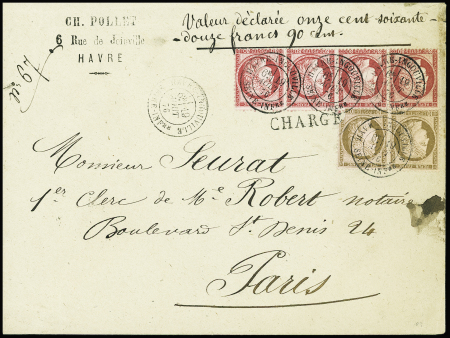 CH. POLLET
6 Rue de Joinville
HAVRE
N° 67
Valeur déclarée onze cent soixante
-douze francs 90 cent.
CHARGÉ
Monsieur Seurat
1er Clerc de Me Robert notaire
Boulevard St Denis 24
Paris